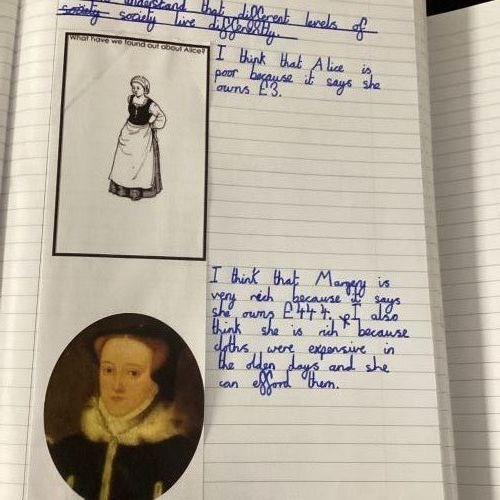 understand that different levels of
society society live differently.
What have we found out about Alice?
I think that Alice is
poor because it says she
owns £3.
I think that Margery is
very rich because it says
she owns £444. I also
think she is rich because
cloths were expensive in
the olden days and she
can efford them.